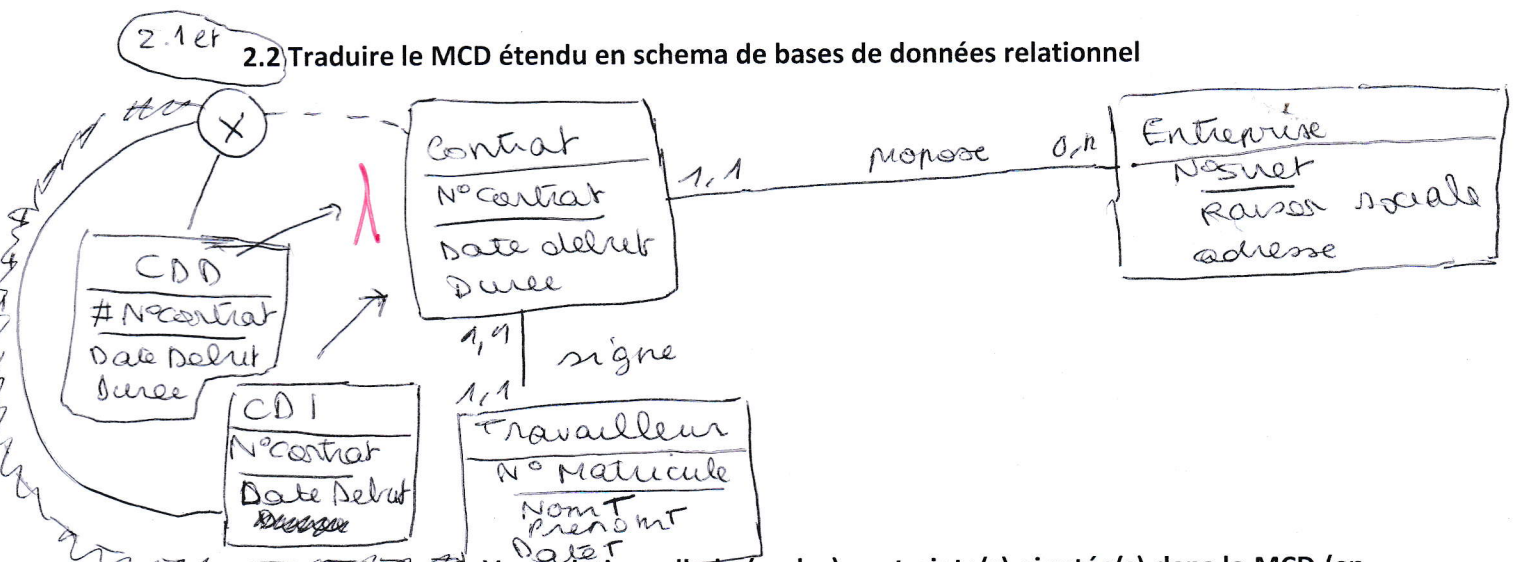 2.1 et
2.2 Traduire le MCD étendu en schema de bases de données relationnel
X
Contrat
N° Contrat
Date debut
Duree
1,1
propose
0,n
Entreprise
N° Siret
Raison sociale
adresse
CDD
# N° contrat
Date Debut
Duree
1,1
signe
1,1
CDI
N° Contrat
Date Debut
Travailleur
N° Matricule
NomT
PrenomT
DateT